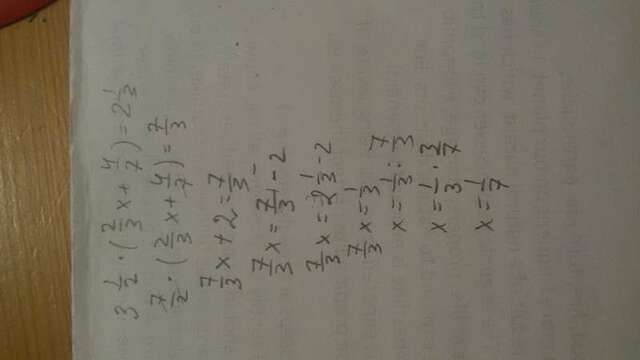 3 1/2 · (2/3 x + 4/7) = 2 1/3
7/2 · (2/3 x + 4/7) = 7/3
7/3 x + 2 = 7/3
7/3 x = 7/3 - 2
7/3 x = 2 1/3 - 2
7/3 x = 1/3
x = 1/3 : 7/3
x = 1/3 · 3/7
x = 1/7